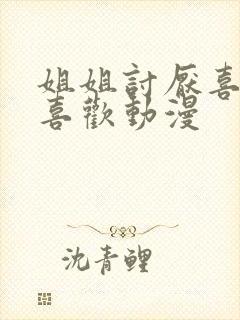 姐姐討厭喜
喜歡動漫
沈青鯉